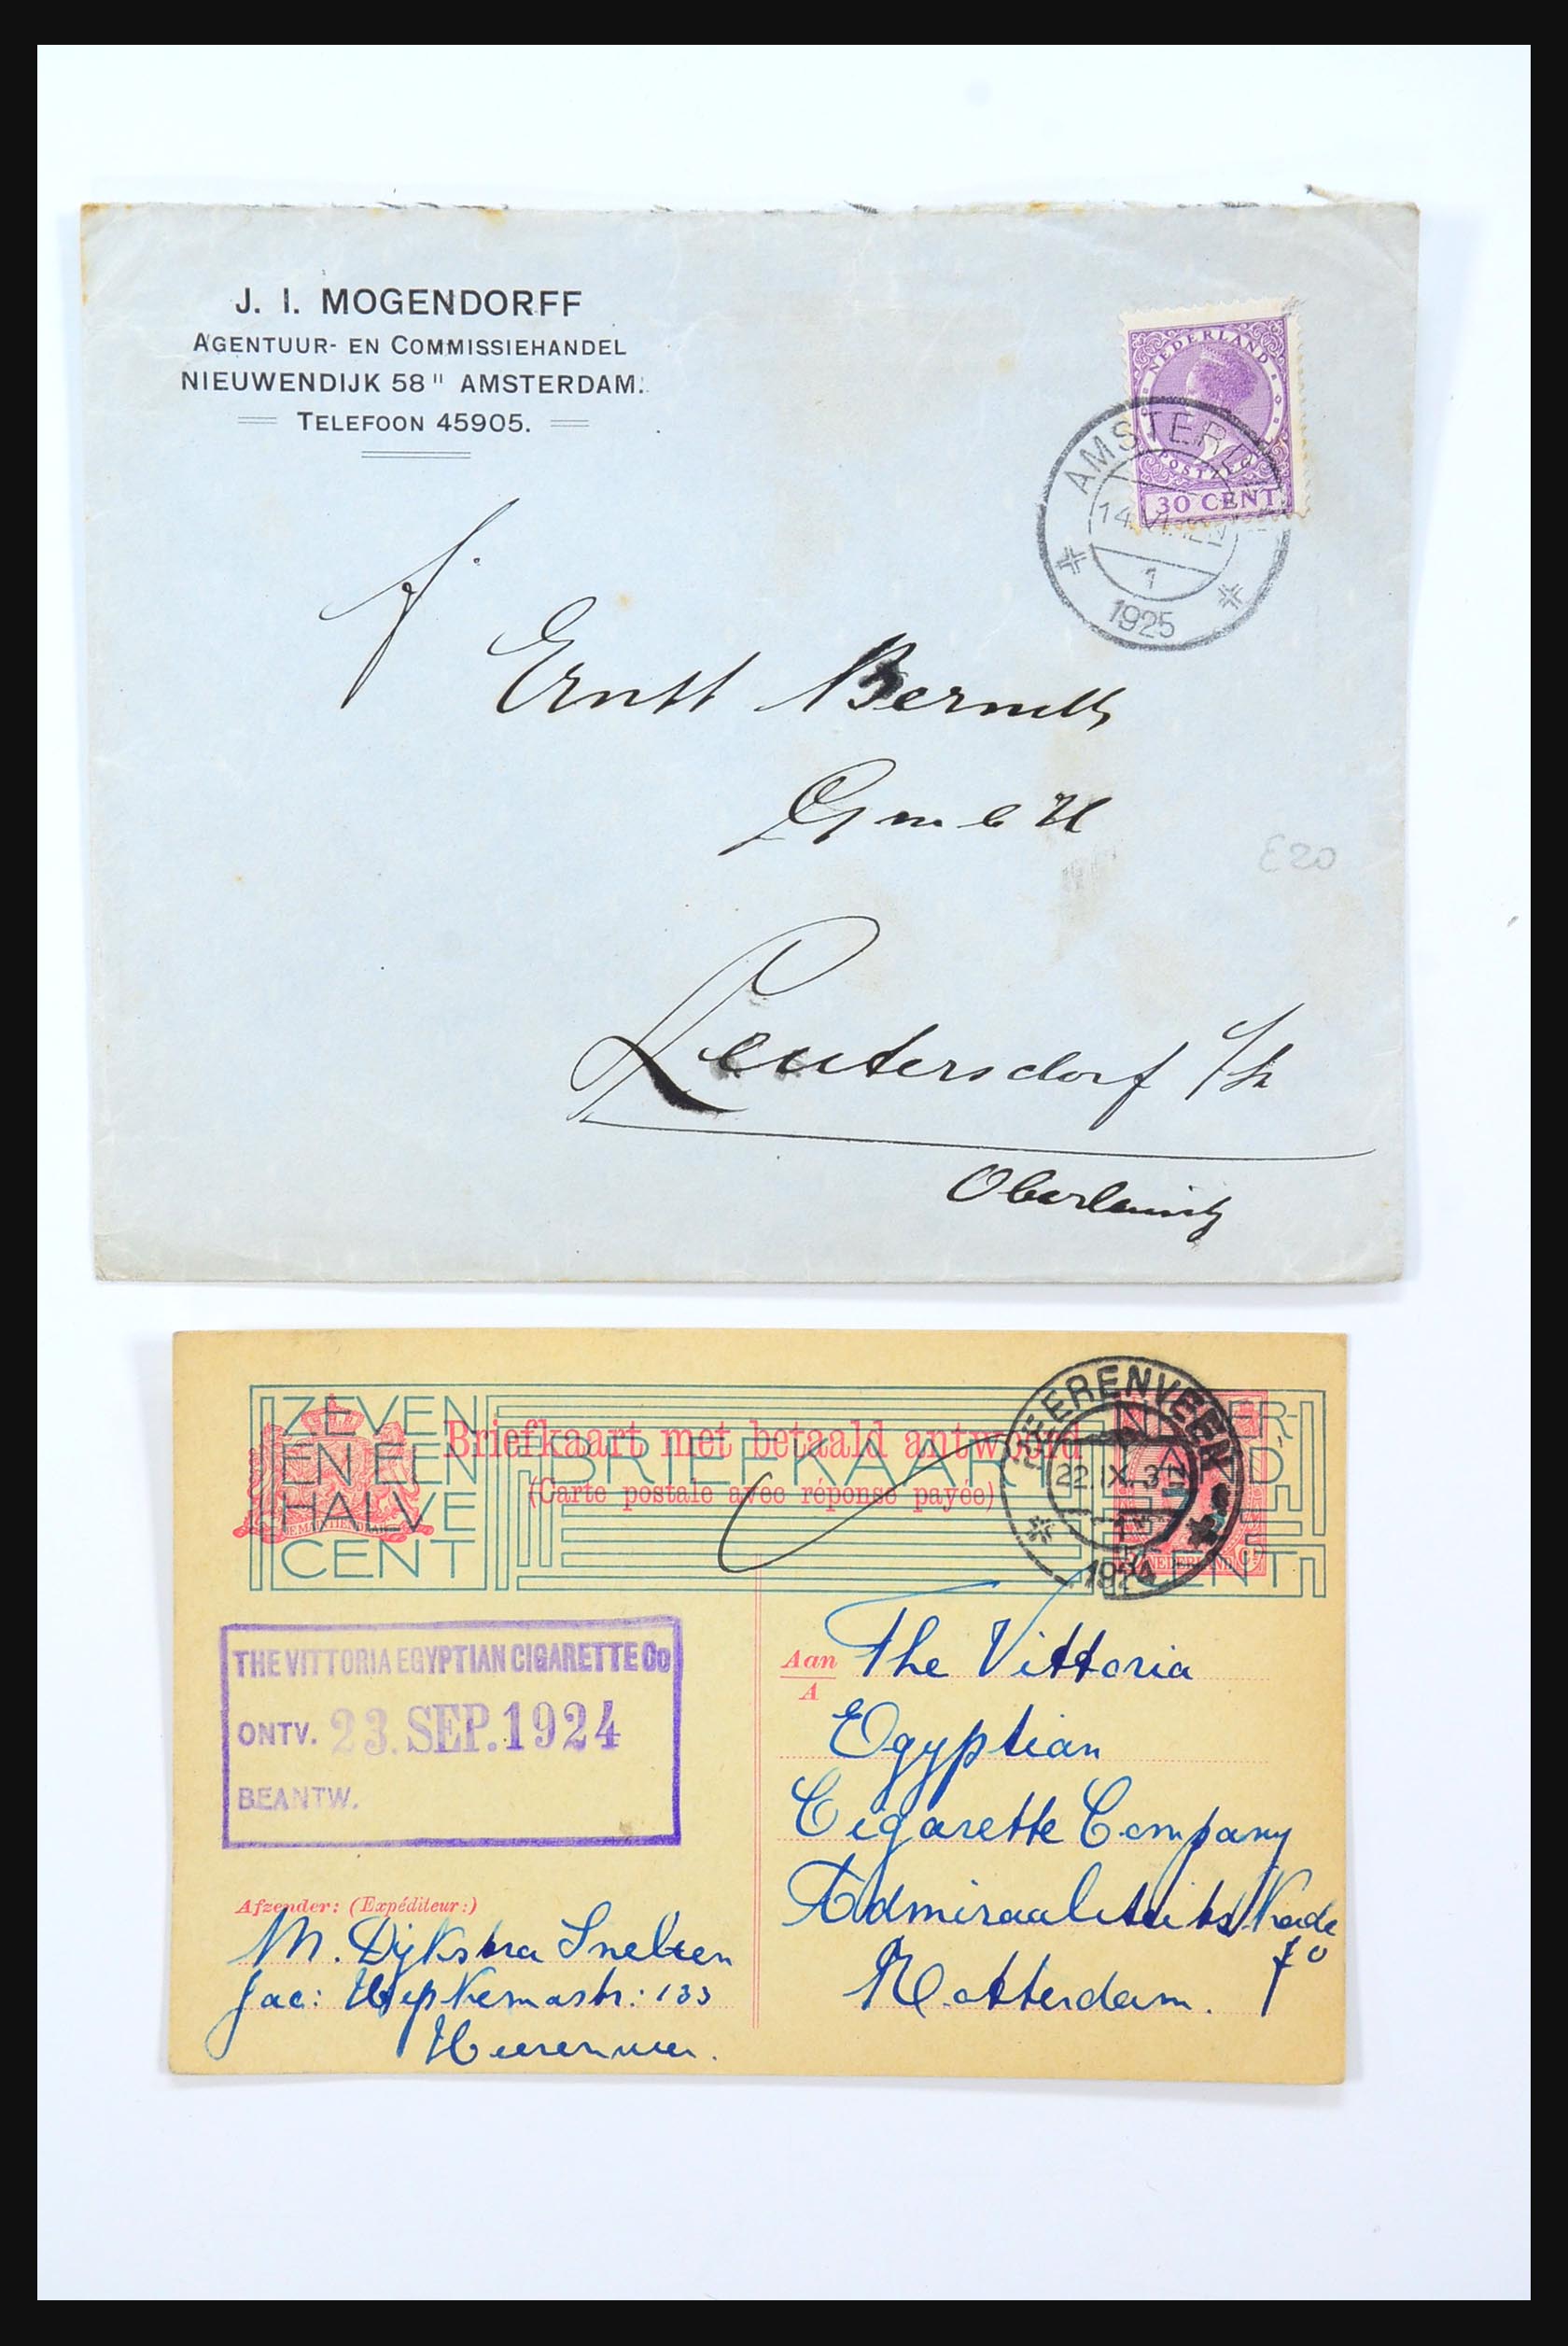 J. I. MOGENDORFF
AGENTUUR- EN COMMISSIEHANDEL
NIEUWENDIJK 58" AMSTERDAM.
TELEFOON 45905.
NEDERLAND
30 CENT
AMSTERD
14
1
1925
Ernst
GmbH
£20
Leutersdorf
Oberlausitz
ZEVEN
EN EEN
HALVE
CENT
BRIEFKAART
Briefkaart met betaald antwoord
(Carte postale avec réponse payée)
HEERENVEEN
22.IX.
1924
NEDERLAND
CENT
THE VITTORIA EGYPTIAN CIGARETTE Co
ONTV. 23.SEP.1924
BEANTW.
Aan
A
The Vittoria
Egyptian
Cigarette Company
Admiraliteits Kade
70
Rotterdam.
Afzender: (Expéditeur:)
M. Dijkstra Snelsen
Jac: Hepkemastr: 133
Heerenveen.